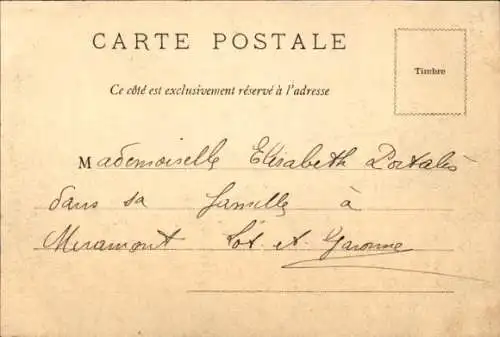 CARTE POSTALE
Timbre
Ce côté est exclusivement réservé à l'adresse
Mademoiselle Elisabeth Portalès
dans sa famille à
Miramont Lot et Garonne